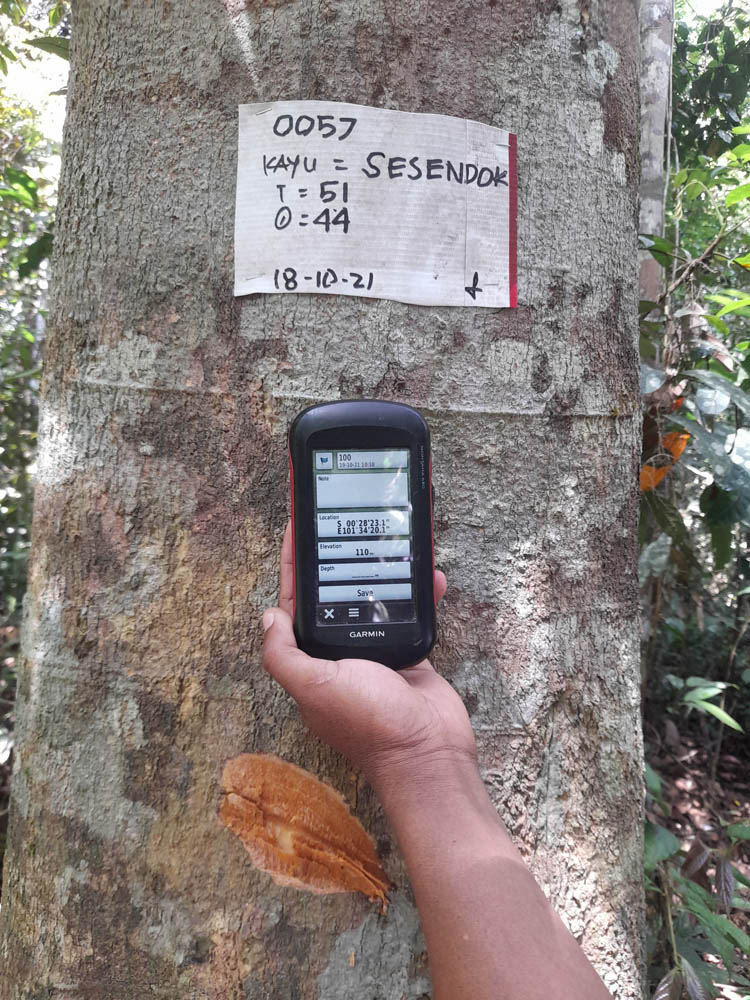 0057
KAYU = SESENDOK
T = 51
Ø = 44
18-10-21
100
Note
Location
S 00°28'23.1"
E101°34'20.1"
Elevation
110 m
Depth
Save
GARMIN